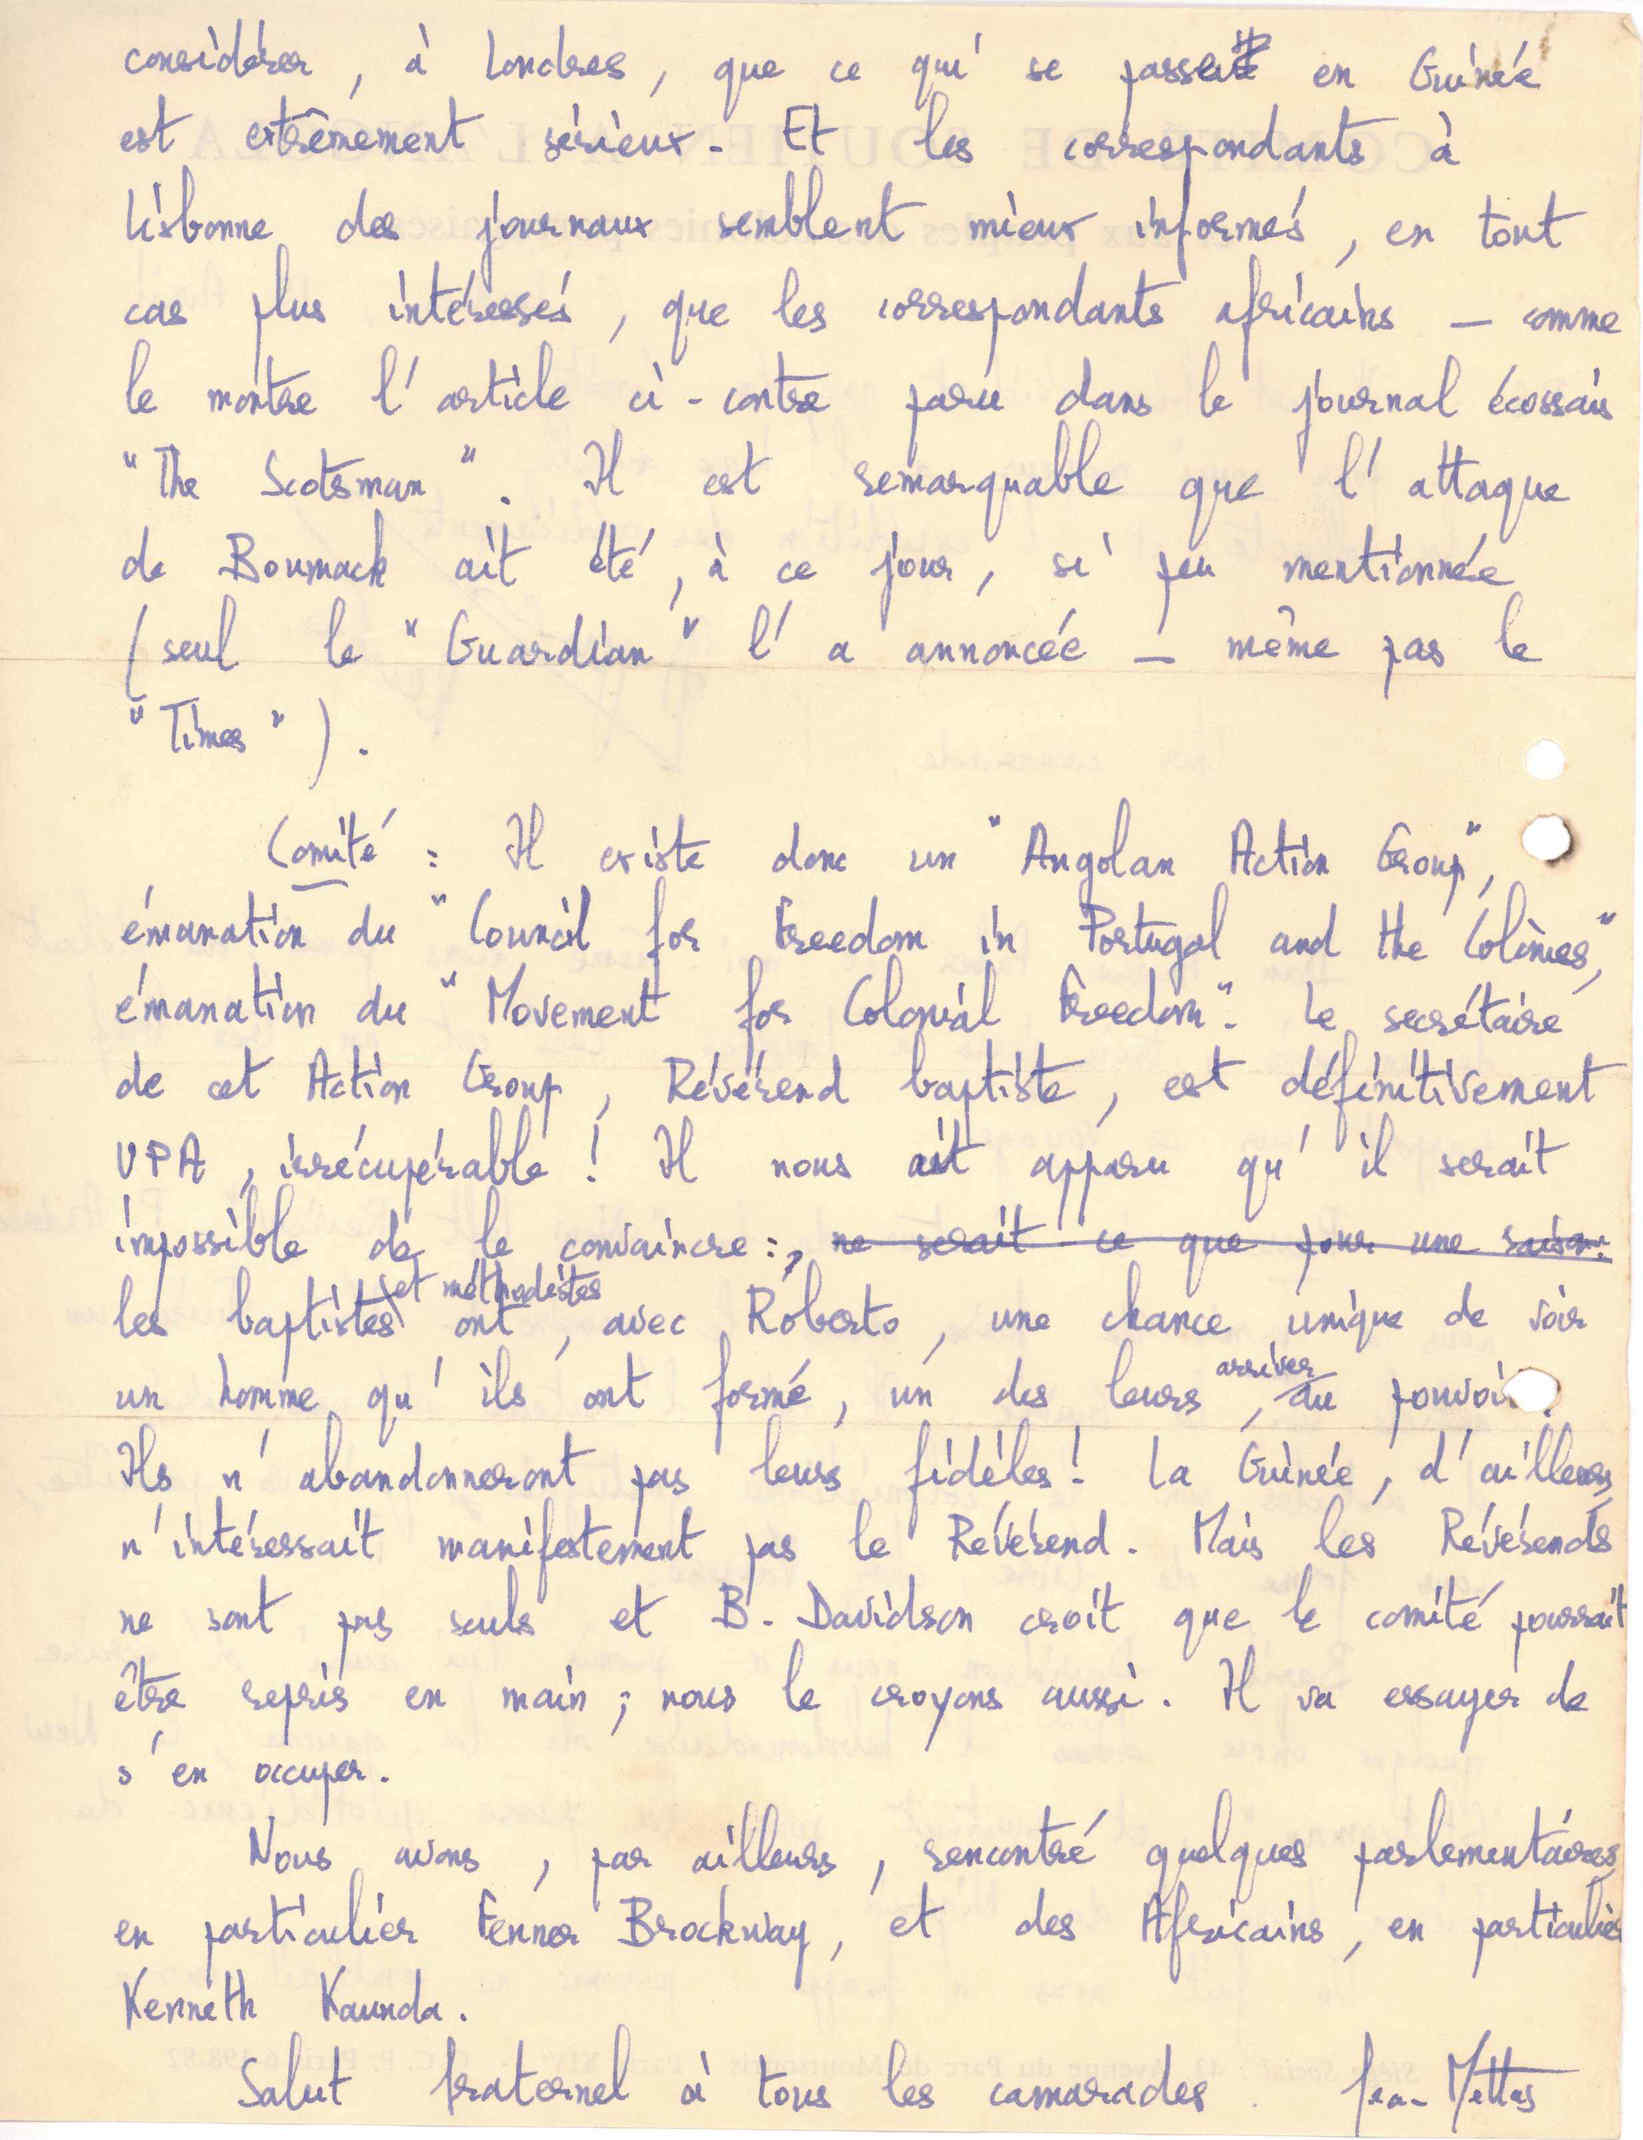 considérer, à Londres, que ce qui se passe en Guinée
est extrêmement sérieux. Et les correspondants à
Lisbonne des journaux semblent mieux informés, en tout
cas plus intéressés, que les correspondants africains – comme
le montre l'article ci-contre paru dans le journal écossais
"The Scotsman". Il est remarquable que l'attaque
de Boumack ait été, à ce jour, si peu mentionnée
(seul le "Guardian" l'a annoncée – même pas le
"Times").
Comité : Il existe donc un "Angolan Action Group",
émanation du "Council for Freedom in Portugal and the Colonies",
émanation du "Movement for Colonial Freedom". Le secrétaire
de cet Action Group, Révérend baptiste, est définitivement
UPA, irrécupérable ! Il nous est apparu qu'il serait
impossible de le convaincre :, ne serait ce que pour une saison.
les baptistes et méthodistes ont, avec Roberto, une chance unique de voir
un homme qu'ils ont formé, un des leurs, arriver au pouvoir.
Ils n'abandonneront pas leurs fidèles ! La Guinée, d'ailleurs,
n'intéressait manifestement pas le Révérend. Mais les Révérends
ne sont pas seuls et B. Davidson croit que le comité pourrait
être repris en main ; nous le croyons aussi. Il va essayer de
s'en occuper.
Nous avons, par ailleurs, rencontré quelques parlementaires,
en particulier Fenner Brockway, et des Africains, en particulier
Kenneth Kaunda.
Salut fraternel à tous les camarades. Jean Mettas